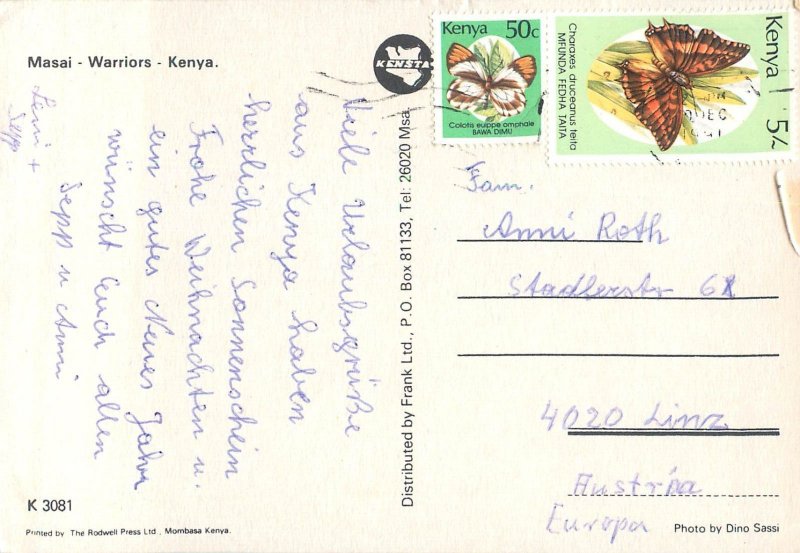 Masai - Warriors - Kenya.
KENSTA
Kenya 50c
Colotis euippe omphale
BAWA DIMU
Kenya 5/-
Charaxes druceanus teita
MFUNDA FEDHA TAITA
DEC
1991
Viele Urlaubsgrüße
aus Kenya haben
herrlichen Sonnenschein
Frohe Weihnachten u.
ein gutes Neues Jahr
wünscht Euch allen
Sepp u Anni
+
Sepp
Distributed by Frank Ltd., P.O. Box 81133, Tel: 26020 Msa.
Fam.
Anni Roth
Stadlerstr 61
4020 Linz
Austria
Europa
K 3081
Printed by The Rodwell Press Ltd., Mombasa Kenya.
Photo by Dino Sassi